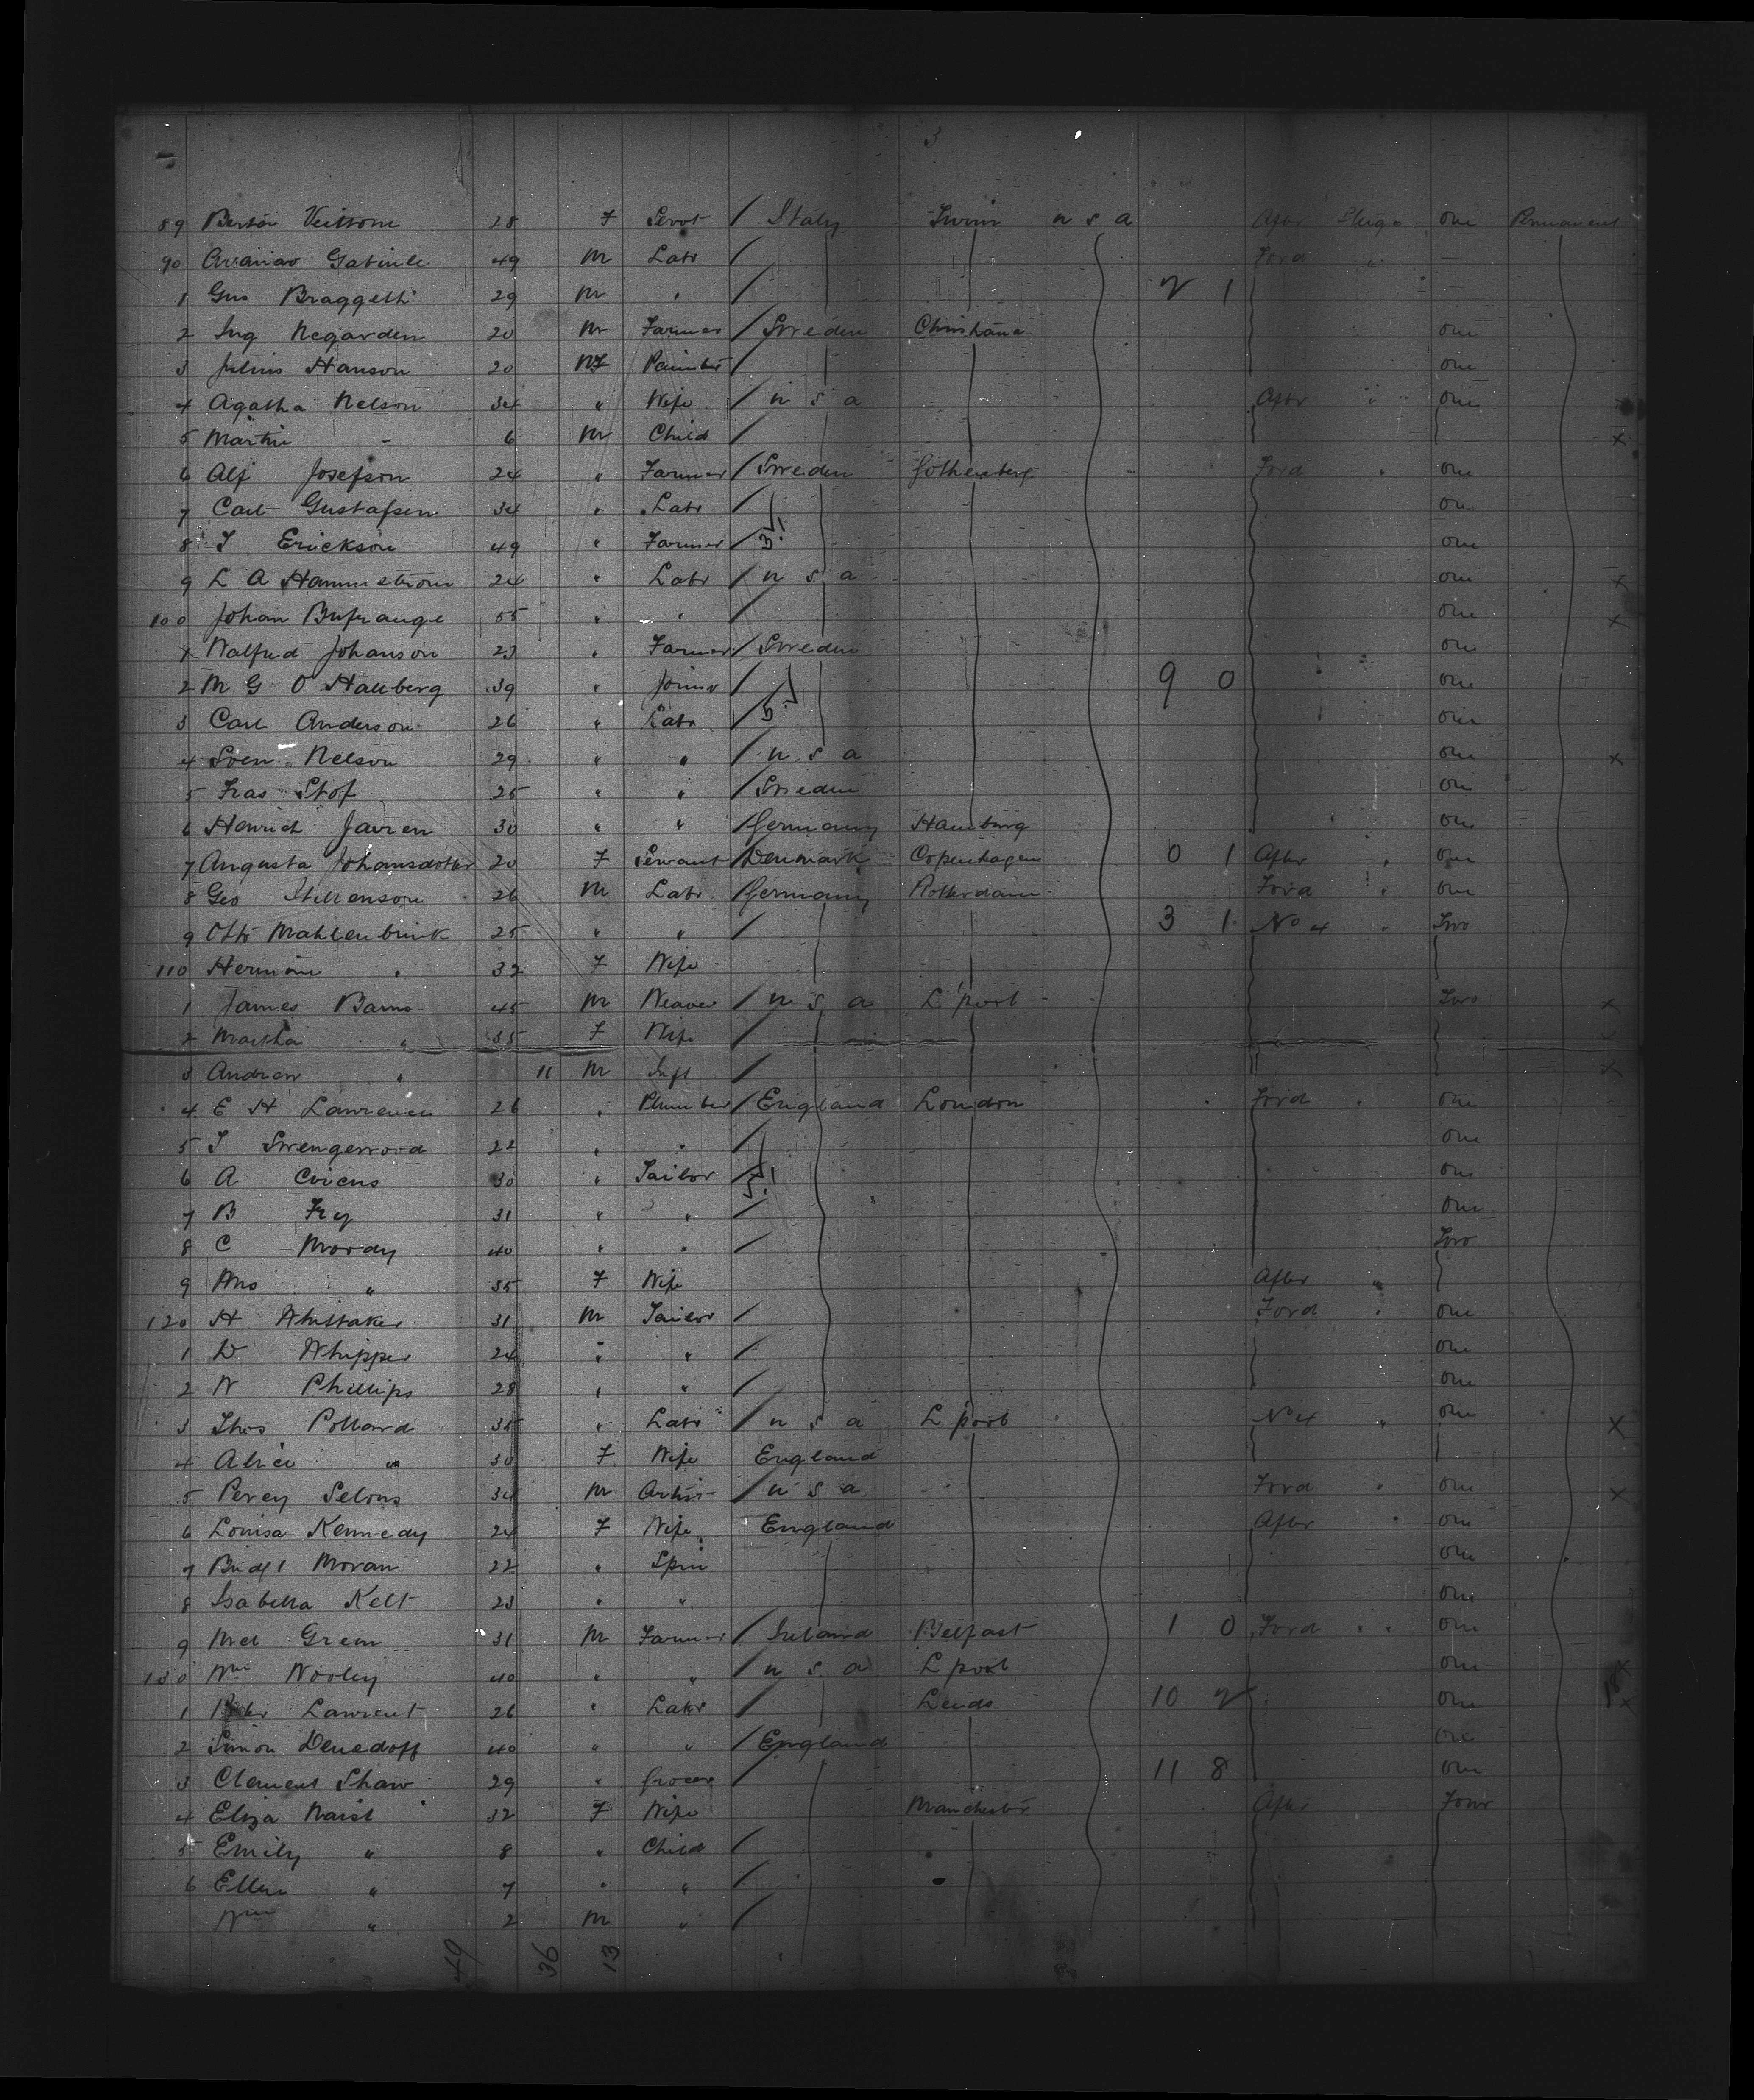 3
89 28 F Servt / Italy Turin u s a Aftr Stige one Permanent
90 49 M Labr / Ford "
1 Gus Braggetti 29 M " / 2 1
2 Ing Negarden 20 M Farmer / Sweden Christiana one
3 Julius Hanson 20 M Painter / one
4 Agatha Nelson 34 " Wife / u s a Aftr " one
5 Martin " 6 M Child / x
6 Alf Josefson 24 " Farmer / Sweden Gothenberg Ford " one
7 Carl Gustafsen 34 " Labr / one
8 J Erickson 49 " Farmer / one
9 L A Hammström 24 " Labr / u s a one x
100 Johan 55 " " / one x
1 Walfred Johanson 23 " Farmer / Sweden one
2 M G O Hallberg 39 " Joiner / 9 0 one
3 Carl Anderson 26 " Labr / one
4 Sven Nelson 29 " " / u s a one x
5 Fras Stof 25 " " / Sweden one
6 Henrich 30 " " / Germany Hamburg one
7 Augusta Johansdotter 20 F Servant / Denmark Copenhagen 0 1 Aftr " one
8 Geo 26 M Labr / Germany Rotterdam Ford " one
9 Otto Mahlenbrink 25 " " / 3 1 No 4 " Two
110 Hermine " 32 F Wife
1 James Barns 45 M Weaver / u s a L'pool Two x
2 Martha " 35 F Wife /
3 Andrew " 11 M Inft / x
4 E H Lawrence 26 " Plumber / England London Ford " one
5 22 " " / one
6 A 30 " Tailor / one
7 B Fry 31 " " / one
8 C Moody 40 " " / Two
9 Mrs " 35 F Wife After "
120 H Whittaker 31 M Tailor / Ford " one
1 D Whipper 24 " " / one
2 W Phillips 28 " " / one
3 Thos Pollard 35 " Labr / u s a L'pool No 4 " one x
4 Alice " 30 F Wife England
5 Percy Selons 34 M Artist / u s a Ford " one x
6 Louisa Kennedy 24 F Wife England Aftr " one
7 Bridgt Moran 22 " Spin one
8 Isabella Kelt 23 " " one
9 Green 31 M Farmer / Ireland Belfast 1 0 Ford " " one
130 Wm Wooley 40 " " / u s a L'pool one x
1 Lawrent 26 " Labr / Leeds 10 2 one x
2 Simon Denedoff 40 " " / England one
3 Clement Shaw 29 " Grocer / 11 8 one
4 Eliza 32 F Wife Manchester Aftr Four
5 Emily " 8 " Child /
6 Ellen " 7 " " /
Wm " 2 M " /
49 36 13